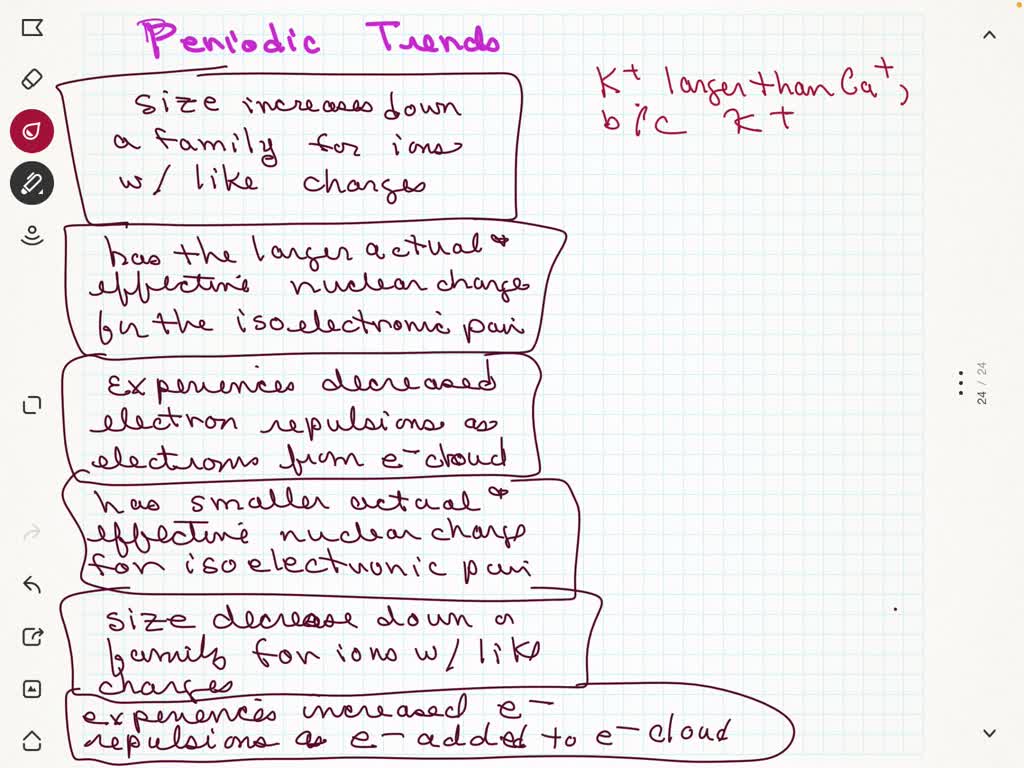 Periodic Trends
size increases down
a family for ions
w/ like charges
has the larger actual &
effective nuclear charge
for the isoelectronic pair
Experiences decreased
electron repulsions as
electrons from e⁻ cloud
has smaller actual &
effective nuclear charge
for isoelectronic pair
size decrease down a
family for ions w/ like
charges
experiences increased e⁻
repulsions as e⁻ added to e⁻ cloud
K⁺ larger than Ca⁺,
b/c K⁺
24 / 24